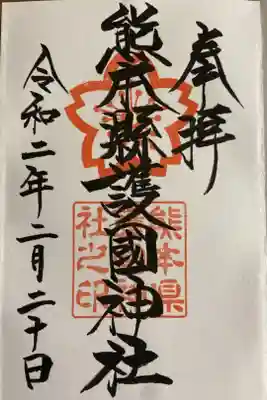 奉拝
熊本縣護國神社
令和二年二月二十日
熊本県
護国神
社之印